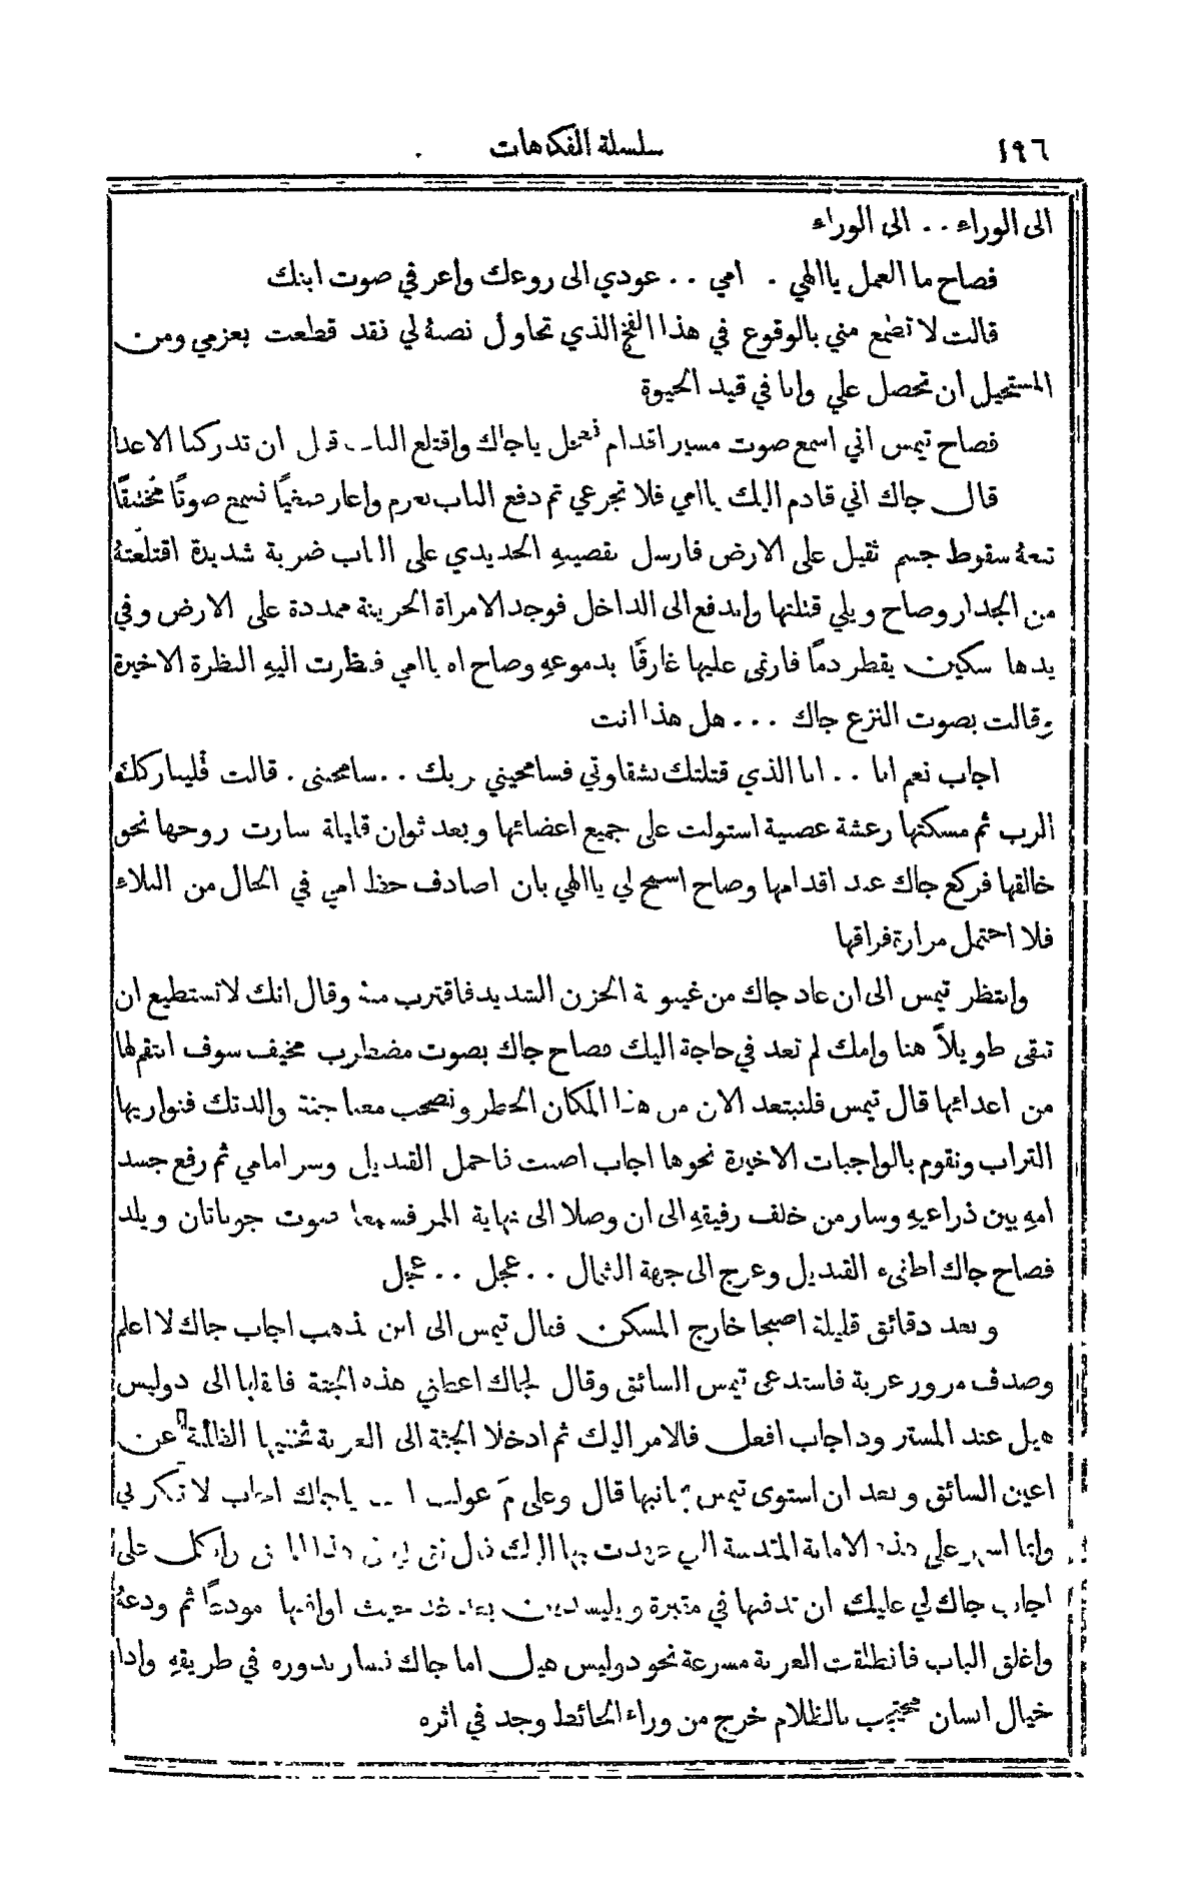 ١٩٦
سلسلة الفكاهات
الى الوراء . . الى الوراء
فصاح ما العمل ياالهي . امي . . عودي الى روعك واعرفي صوت ابنك
قالت لا تطمع مني بالوقوع في هذا الفخ الذي تحاول نصبهُ لي فقد قطعت بعزمي ومن
المستحيل ان تحصل علي وانا في قيد الحيوة
فصاح تيمس اني اسمع صوت مسير اقدام فعجل ياجاك واقتلع الباب قبل ان تدركنا الاعدا
قال جاك اني قادم اليك ياامي فلا تجرعي ثم دفع الباب بعزم واعار صغيًا فسمع صوتًا مختنقًا
تبعهُ سقوط جسم ثقيل على الارض فارسل بقضيبهِ الحديدي على الباب ضربة شديدة اقتلعتهُ
من الجدار وصاح ويلي قتلتها واندفع الى الداخل فوجد الامراة الحزينة ممددة على الارض وفي
يدها سكين يقطر دمًا فارتمى عليها غارقًا بدموعهِ وصاح اه ياامي فنظرت اليهِ النظرة الاخيرة
وقالت بصوت النزع جاك . . . هل هذا انت
اجاب نعم انا . . انا الذي قتلتك بشقاوتي فسامحيني بربك . . سامحيني . قالت فليباركك
الرب ثم مسكتها رعشة عصبية استولت على جميع اعضائها وبعد ثوان قليلة سارت روحها نحو
خالقها فركع جاك عند اقدامها وصاح اسمح لي ياالهي بان اصادف حظ امي في الحال من البلاء
فلا احتمل مرارة فراقها
وانتظر تيمس الى ان عاد جاك من غيبوبة الحزن الشديد فاقترب منهُ وقال انك لا تستطيع ان
تبقى طويلاً هنا وامك لم تعد في حاجة اليك فصاح جاك بصوت مضطرب مخيف سوف انتقم لها
من اعدائها قال تيمس فلنبتعد الان من هذا المكان الخطر ونصحب معنا جثة والدتك فنواريها
التراب ونقوم بالواجبات الاخيرة نحوها اجاب اصبت فاحمل القنديل وسر امامي ثم رفع جسد
امهِ بين ذراعيهِ وسار من خلف رفيقهِ الى ان وصلا الى نهاية الممر فسمعا صوت جوناتان ويلد
فصاح جاك اطفيء القنديل وعرج الى جهة الشمال . . عجل . . عجل
وبعد دقائق قليلة اصبحا خارج المسكن فقال تيمس الى اين نذهب اجاب جاك لا اعلم
وصدف مرور عربة فاستدعى تيمس السائق وقال لجاك اعطني هذه الجثة فانقلها الى دوليس
هيل عند المستر وود اجاب افعل فالامر اليك ثم ادخلا الجثة الى العربة تخفيها الظلمة عن
اعين السائق وبعد ان استوى تيمس بجانبها قال وعلى مَ عولت ياجاك اجاب لا تفكر بي
وانما اسهر على هذه الامانة المقدسة التي عهدت بها اليك قال
اجاب جاك لي عليك ان تدفنها في مقبرة ويليسدين بعد غد حيث اوافيها مودعًا ثم ودعهُ
واغلق الباب فانطلقت العربة مسرعة نحو دوليس هيل اما جاك فسار بدوره في طريقهِ واذا
خيال انسان محتجب بالظلام خرج من وراء الحائط وجد في اثره